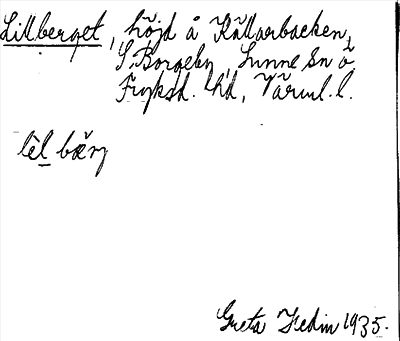 Lillberget, höjd å Källarbacken,
S. Borgeby, Sunne sn ö
Fryksd. hd, Värml. l.
lèl bærj
Greta Hedin 1935.